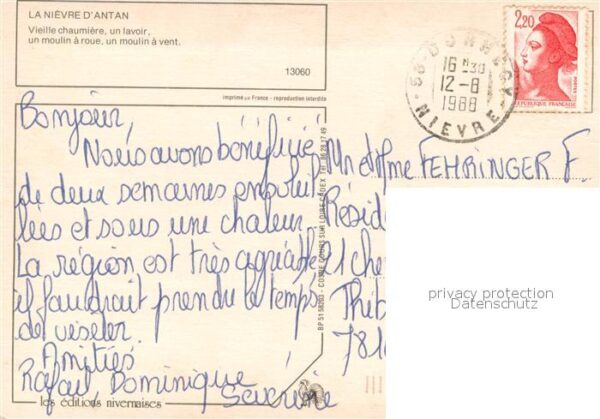 LA NIÈVRE D'ANTAN
Vieille chaumière, un lavoir,
un moulin à roue, un moulin à vent.
13060
imprimé en France - reproduction interdite
2,20
RÉPUBLIQUE FRANÇAISE
58-DORNES
16 H 30
12-8
1988
NIEVRE
Bonjour,
Nous avons bénéficié
de deux semaines ensoleil
lées et sous une chaleur.
La région est très agréable
il faudrait prendre le temps
de visiter.
Amitiés
Rafael, Dominique
Séverine
les éditions nivernaises
BP 5 58203 - COSNE COURS SUR LOIRE CEDEX
Mr et Mme FEHRINGER F.
Résid
1 che
Thib
781
privacy protection
Datenschutz